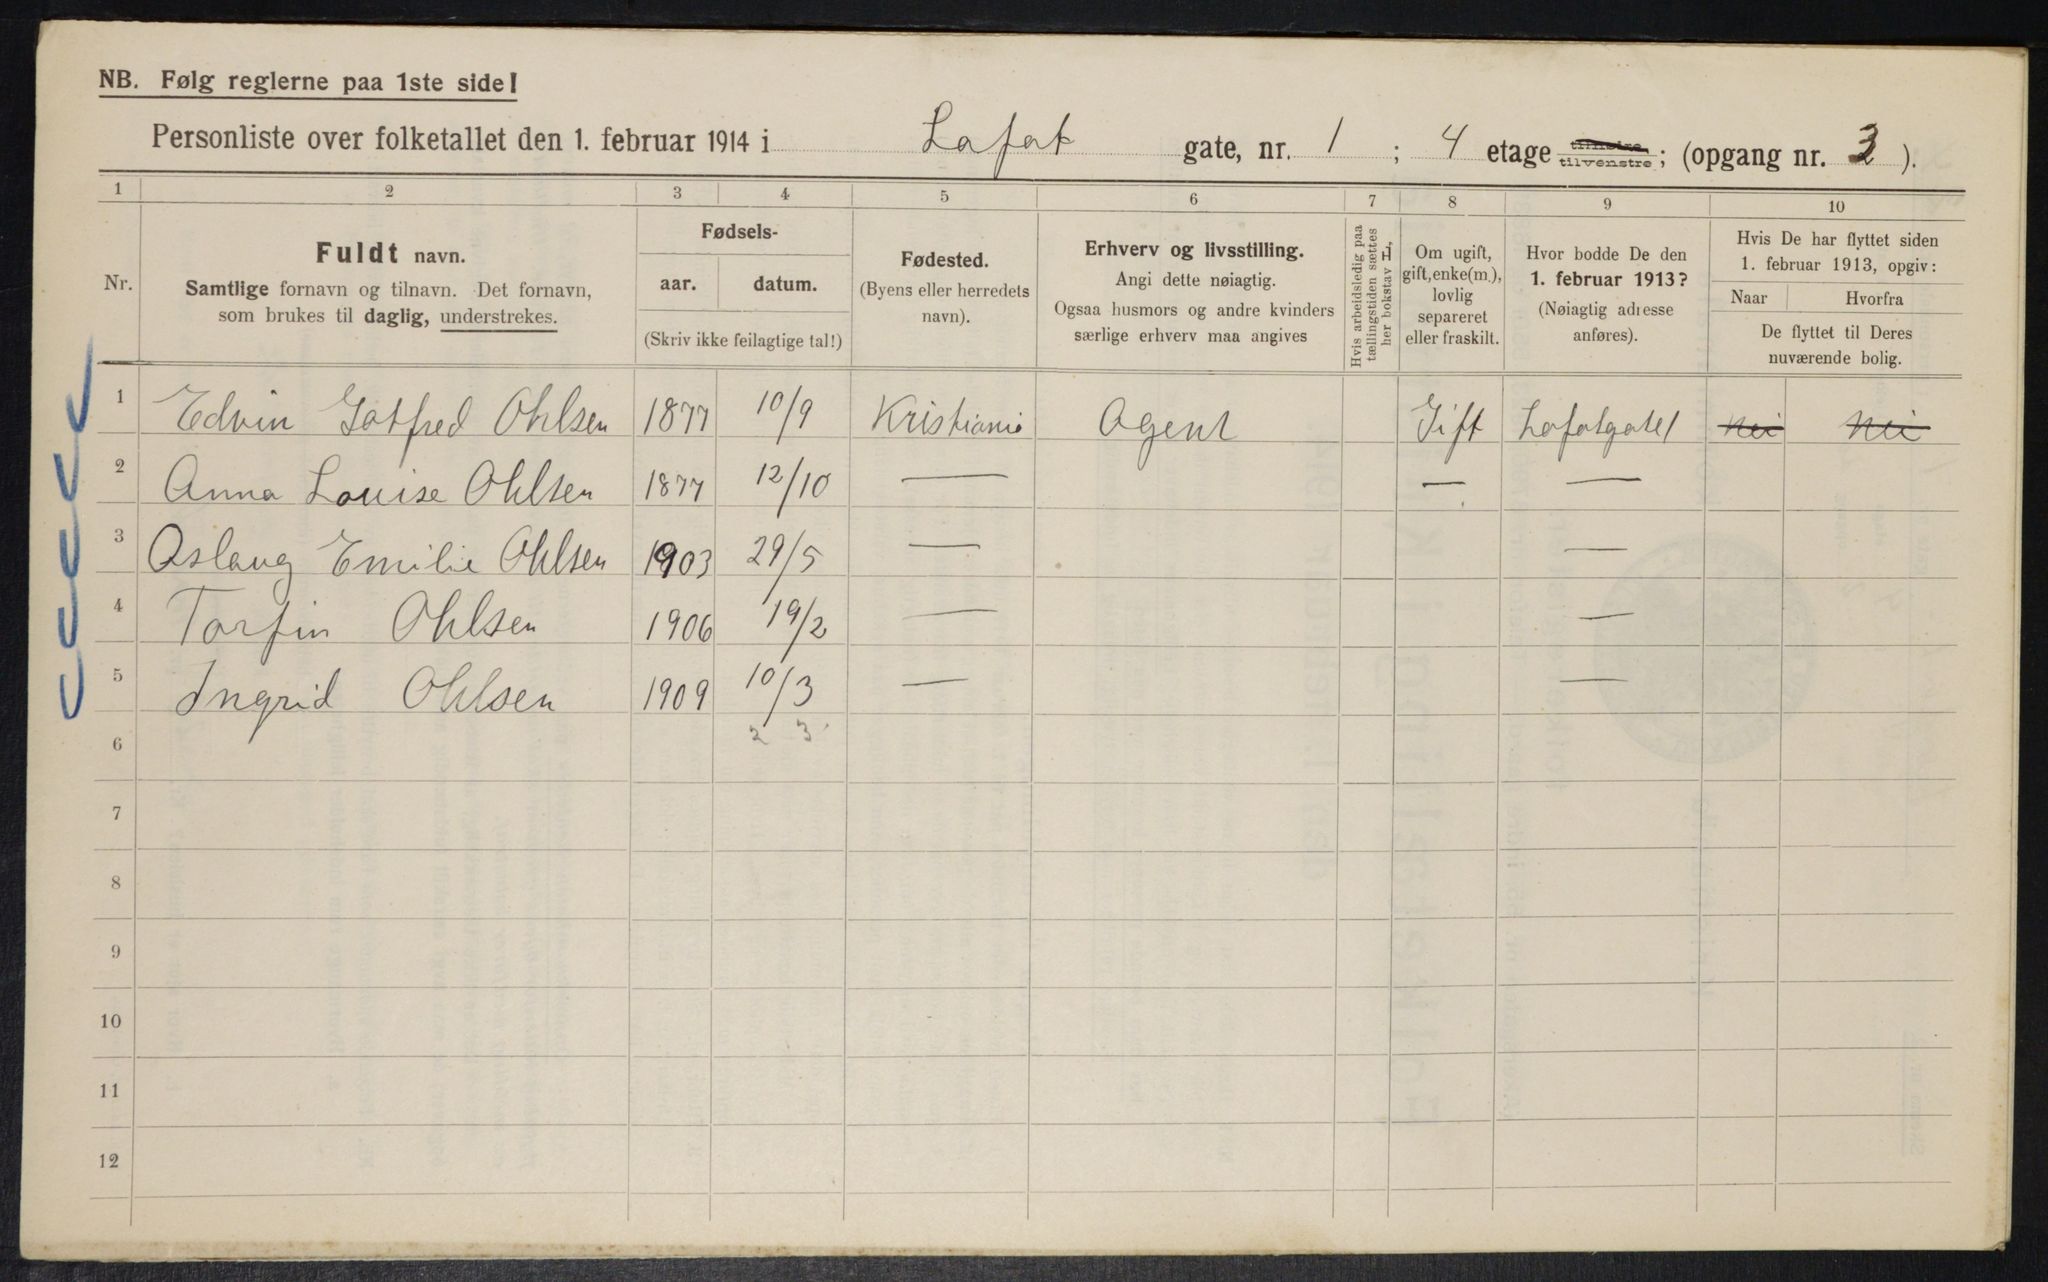 NB. Følg reglerne paa 1ste side!
Personliste over folketallet den 1. februar 1914 i Lofot gate, nr. 1 ; 4 etage tilhøire tilvenstre; (opgang nr. 3 ).
1 2 3 4 5 6 7 8 9 10
Nr.
Fuldt navn.
Samtlige fornavn og tilnavn. Det fornavn,
som brukes til daglig, understrekes.
Fødsels-
aar. datum.
(Skriv ikke feilagtige tal!)
Fødested.
(Byens eller herredets
navn).
Erhverv og livsstilling.
Angi dette nøiagtig.
Ogsaa husmors og andre kvinders
særlige erhverv maa angives
Hvis arbeidsledig paa
tællingstiden sættes
her bokstav L,
Om ugift,
gift, enke(m.),
lovlig
separeret
eller fraskilt.
Hvor bodde De den
1. februar 1913?
(Nøiagtig adresse
anføres).
Hvis De har flyttet siden
1. februar 1913, opgiv:
Naar Hvorfra
De flyttet til Deres
nuværende bolig.
1 Edvin Gotfred Ohlsen 1877 10/9 Kristiania Agent Gift Lofotgate 1 Nei Nei
2 Anna Louise Ohlsen 1877 12/10 — — —
3 Aslaug Emilie Ohlsen 1903 29/5 — —
4 Torfin Ohlsen 1906 19/2 — —
5 Ingrid Ohlsen 1909 10/3 — —
6 2 3
7
8
9
10
11
12